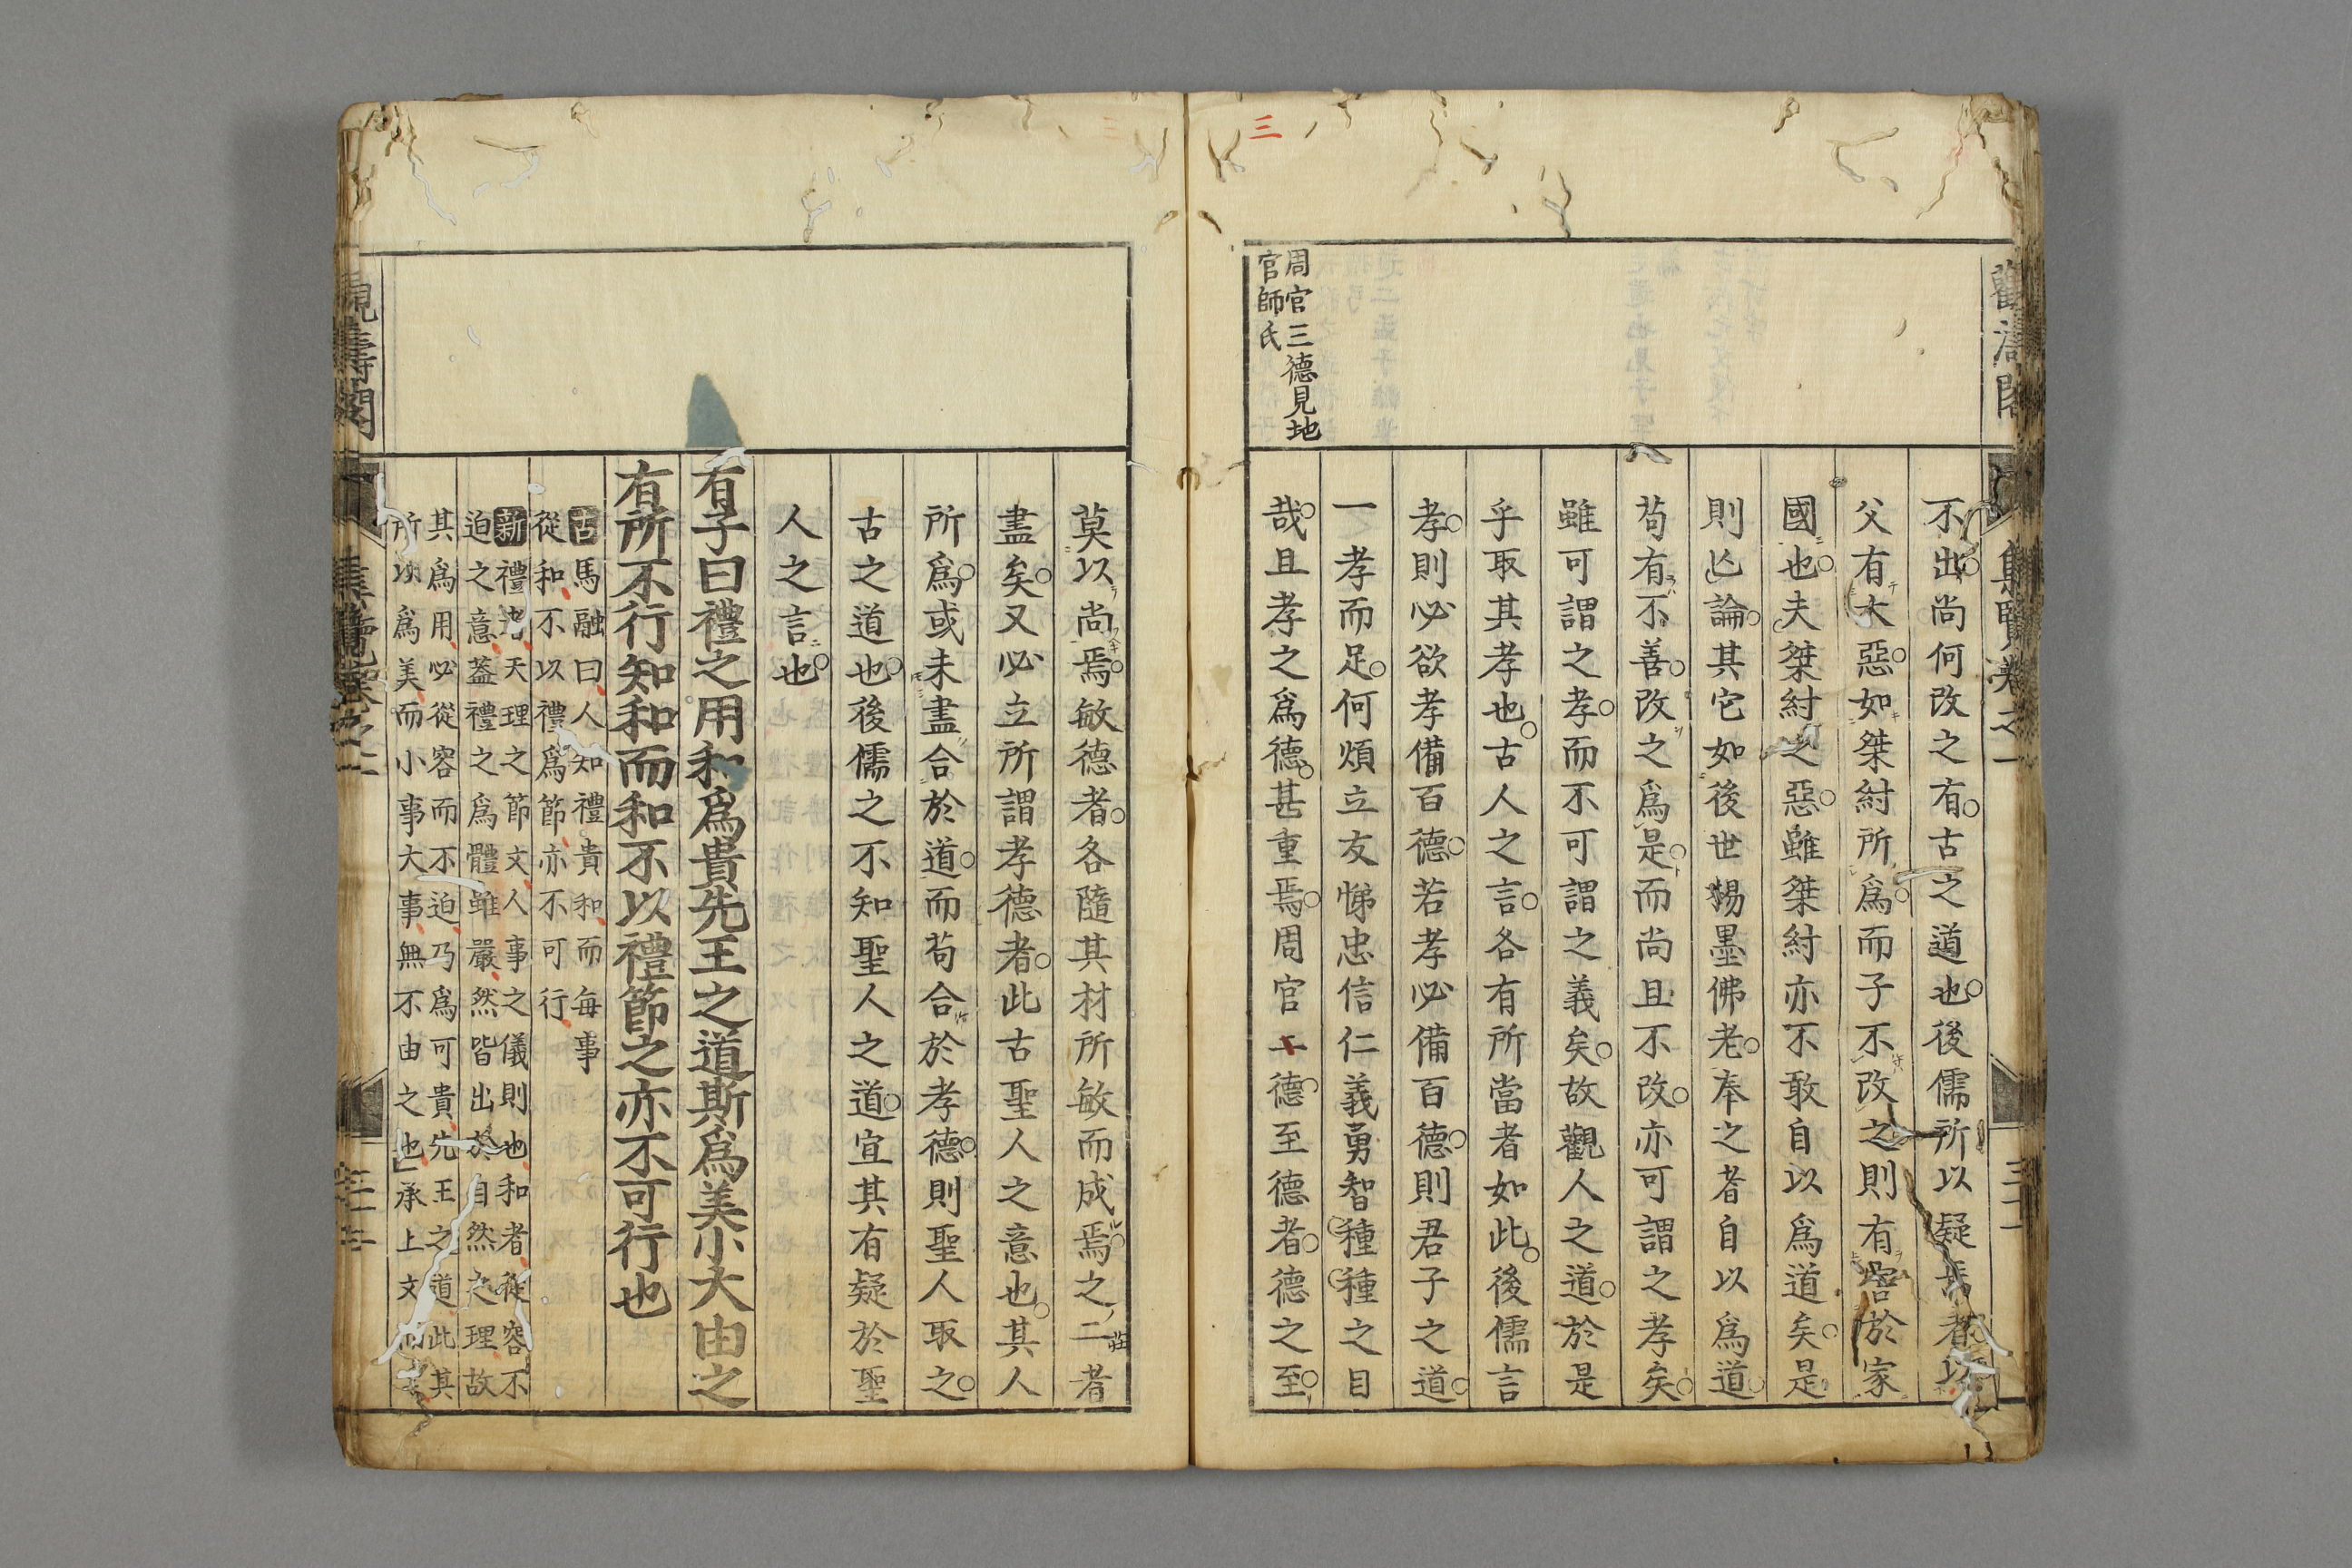 三
周官三德見地
官師氏
集覽卷之一
三十一
不出尚何改之有古之道也後儒所以疑焉者以
父有大惡如桀紂所爲而子不改之則有害於家
國也夫桀紂之惡雖桀紂亦不敢自以爲道矣是
則亾論其它如後世楊墨佛老奉之者自以爲道
苟有不善改之爲是而尚且不改亦可謂之孝矣
雖可謂之孝而不可謂之義矣故觀人之道於是
乎取其孝也古人之言各有所當者如此後儒言
孝則必欲孝備百德若孝必備百德則君子之道
一孝而足何煩立友悌忠信仁義勇智種種之目
哉且孝之爲德甚重焉周官 德至德者德之至
三
莫以尚焉敏德者各隨其材所敏而成焉之二者
盡矣又必立所謂孝德者此古聖人之意也其人
所爲或未盡合於道而苟合於孝德則聖人取之
古之道也後儒之不知聖人之道宜其有疑於聖
人之言也
有子曰禮之用和爲貴先王之道斯爲美小大由之
有所不行知和而和不以禮節之亦不可行也
古馬融曰人知禮貴和而每事
從和不以禮爲節亦不可行
新禮者天理之節文人事之儀則也和者從容不
迫之意蓋禮之爲體雖嚴然皆出於自然之理故
其爲用必從容而不迫乃爲可貴先王之道此其
所以爲美而小事大事無不由之也承上文而言